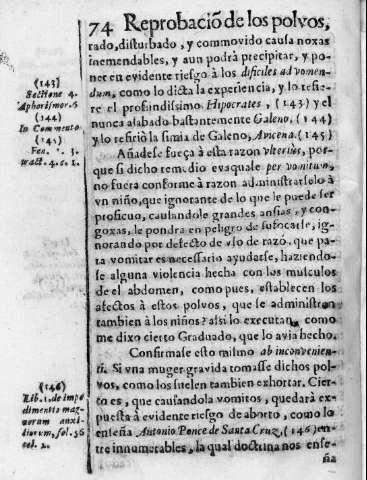 74 Reprobació de los polvos,
tado, disturbado, y commovido causa noxas
inemendables, y aun podrà precipitar, y po-
ner en evidente riesgo à los dificiles ad vomen-
dum, como lo dicta la experiencia, y lo refie-
re el profundissimo Hipocrates, (143) y el
nunca alabado bastantemente Galeno, (144)
y lo refiriò la simia de Galeno, Avicena. (145)
Añadese fuerça à esta razon vlterius, por-
que si dicho remedio evaquale per vomitum,
no fuera conforme à razon administrarselo à
vn niño, que ignorante de lo que le puede ser
proficuo, causandole grandes ansias, y con-
goxas, le pondra en peligro de sufocarse, ig-
norando por defecto de vso de razó, que pa-
ra vomitar es necessario ayudarse, haziendo-
se alguna violencia hecha con los musculos
de el abdomen, como pues, establecen los
afectos à estos polvos, que se administren
tambien à los niños? assi lo executan, como
me dixo cierto Graduado, que lo avia hecho.
Confirmase esto mismo ab inconvenien-
ti. Si vna muger gravida tomasse dichos pol-
vos, como los suelen tambien exhortar. Cier-
to es, que causandola vomitos, quedarà ex-
puesta à evidente riesgo de aborto, como lo
enseña Antonio Ponce de Santa Cruz, (146) en-
tre innumerables, la qual doctrina nos ense-
ña
(143)
Sectione 4.
Aphorismor. 6
(144)
In Commento
(145)
Fen. 1. 3.
tract. 4. c. 1.
(146)
Lib. 1. de impe
dimentis mag-
norum auxi-
liorum, fol. 56
col. 2.